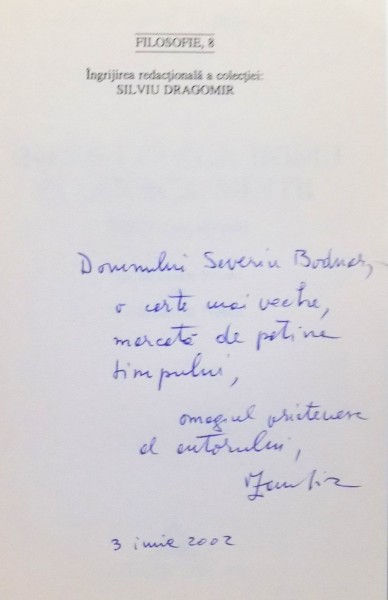 FILOSOFIE, 8
Îngrijirea redacțională a colecției:
SILVIU DRAGOMIR
Domnului Severin Bodnar,
o carte mai veche,
marcată de patina
timpului,
omagiul prietenesc
al autorului,
3 iunie 2002